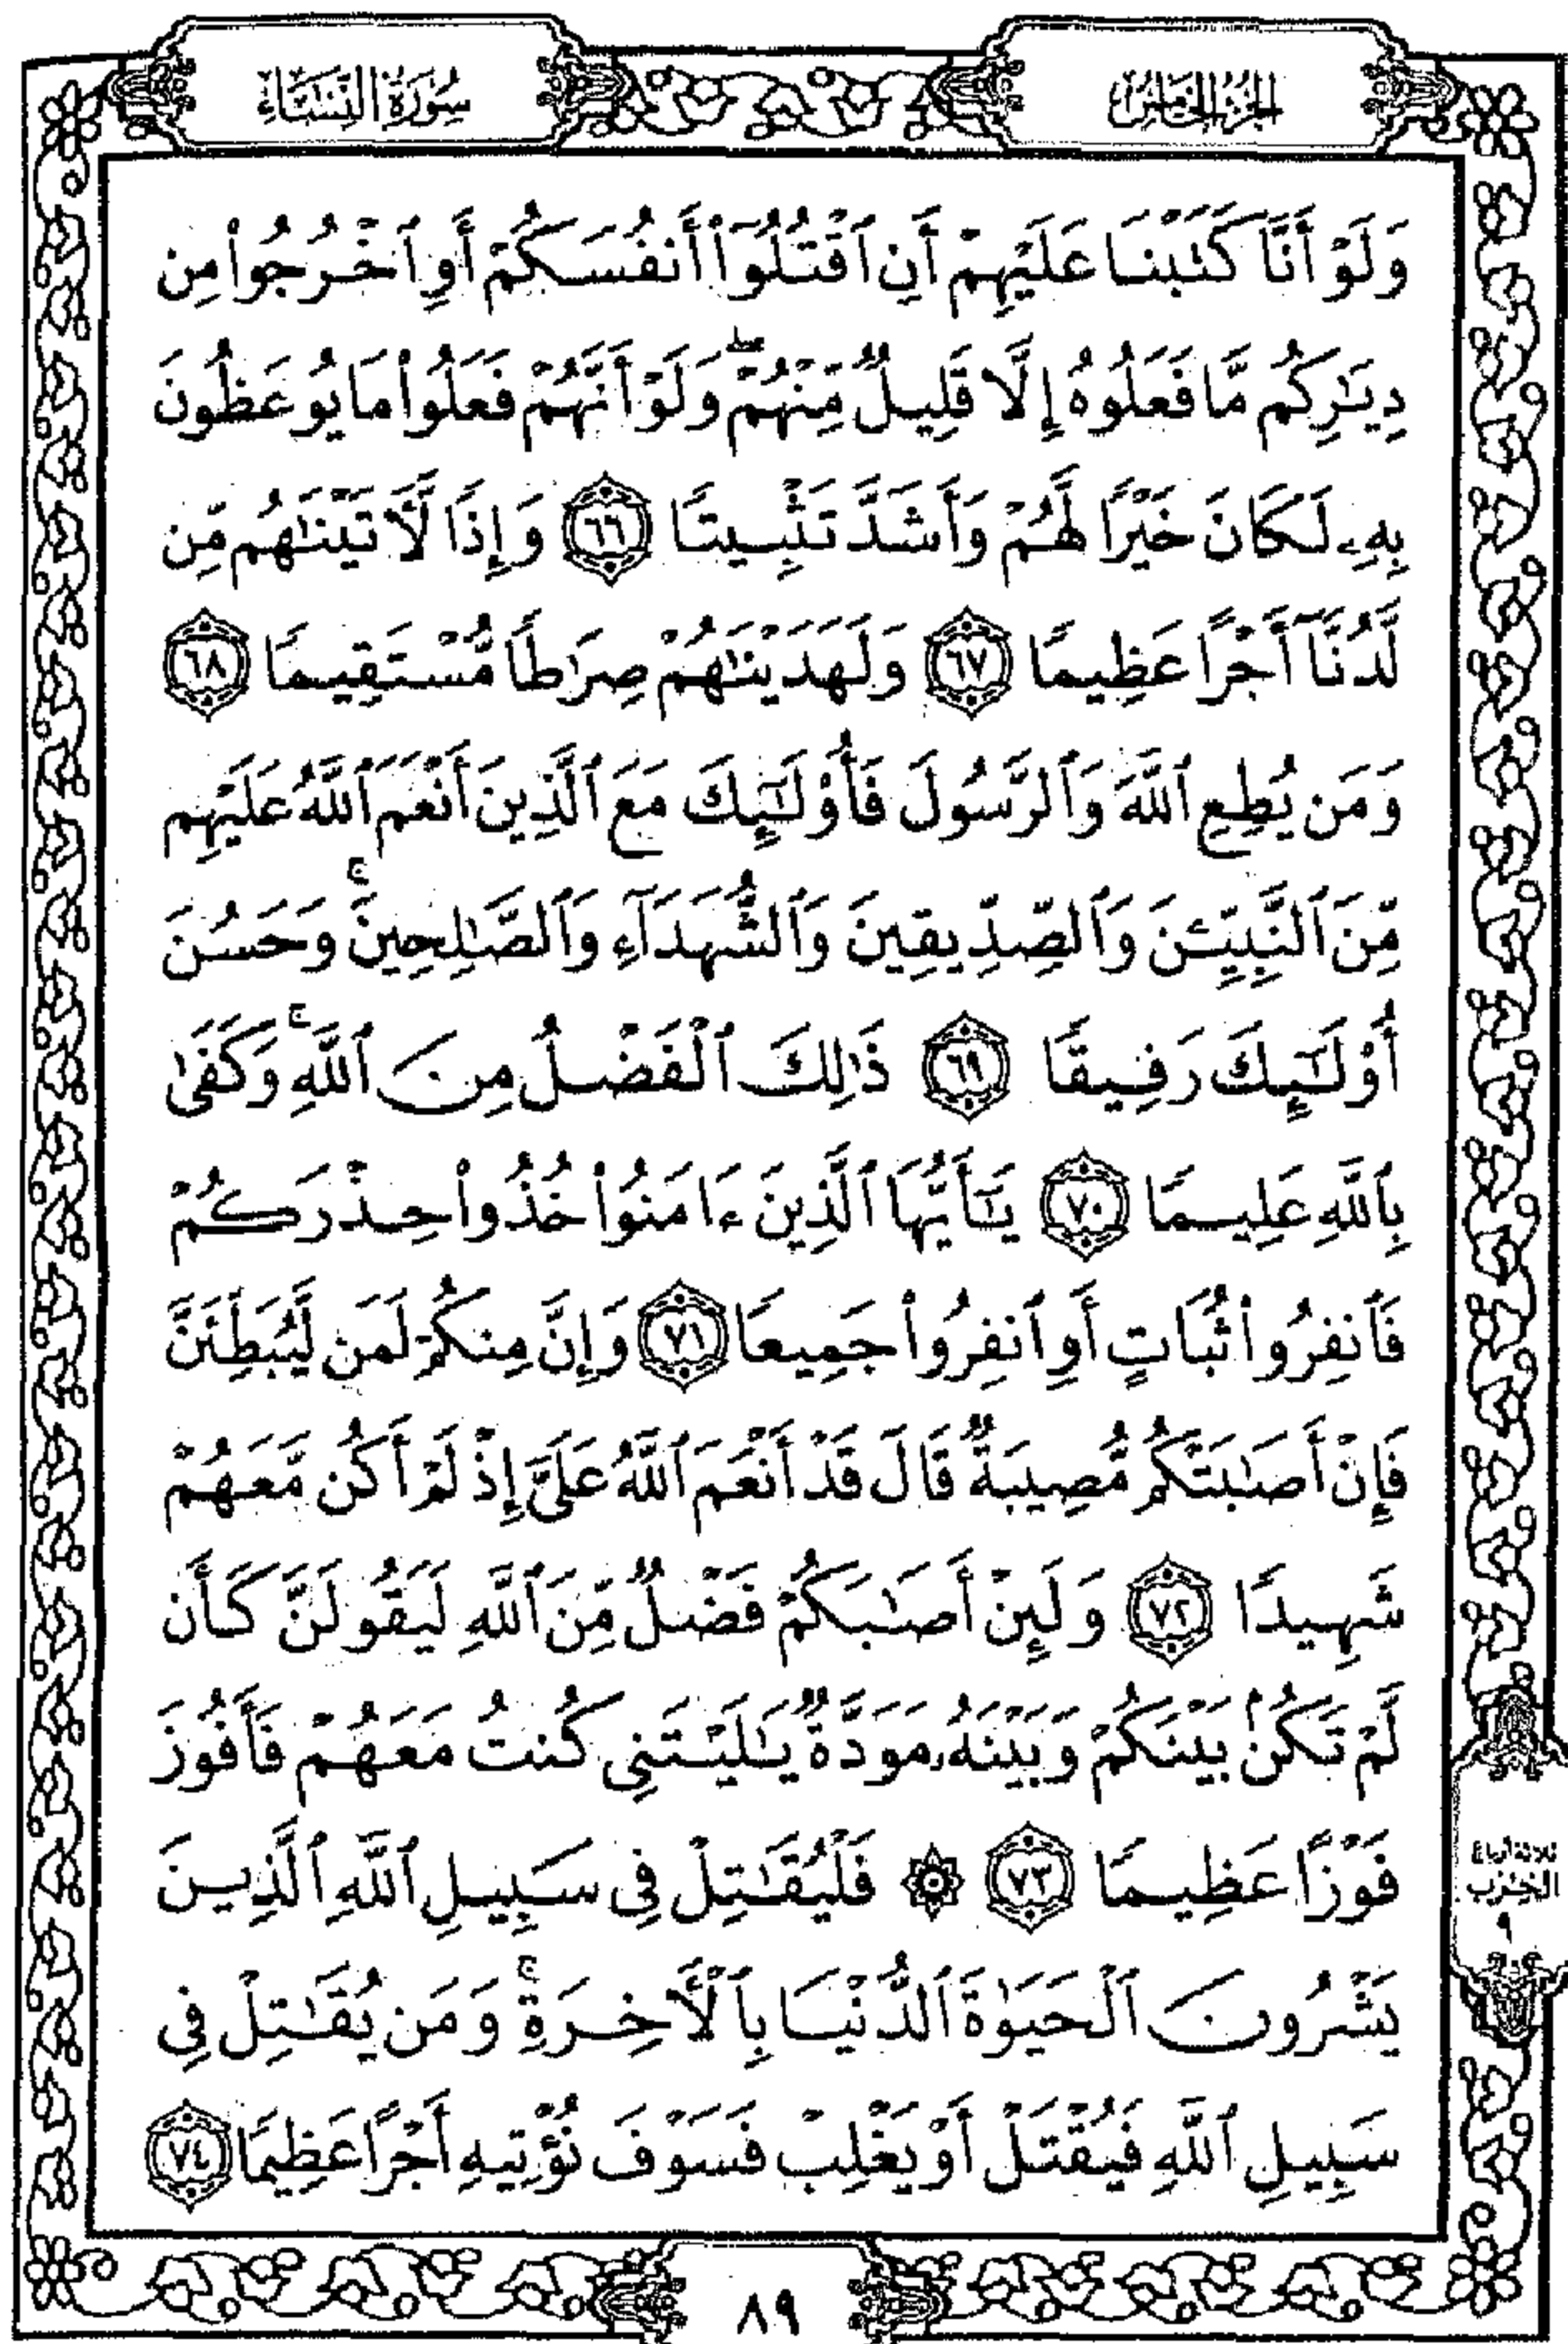 الجزء الخامس
سورة النساء
وَلَوْ أَنَّا كَتَبْنَا عَلَيْهِمْ أَنِ ٱقْتُلُوٓا۟ أَنفُسَكُمْ أَوِ ٱخْرُجُوا۟ مِن
دِيَٰرِكُم مَّا فَعَلُوهُ إِلَّا قَلِيلٌ مِّنْهُمْ ۖ وَلَوْ أَنَّهُمْ فَعَلُوا۟ مَا يُوعَظُونَ
بِهِۦ لَكَانَ خَيْرًا لَّهُمْ وَأَشَدَّ تَثْبِيتًا ٦٦ وَإِذًا لَّءَاتَيْنَٰهُم مِّن
لَّدُنَّآ أَجْرًا عَظِيمًا ٦٧ وَلَهَدَيْنَٰهُمْ صِرَٰطًا مُّسْتَقِيمًا ٦٨
وَمَن يُطِعِ ٱللَّهَ وَٱلرَّسُولَ فَأُو۟لَٰٓئِكَ مَعَ ٱلَّذِينَ أَنْعَمَ ٱللَّهُ عَلَيْهِم
مِّنَ ٱلنَّبِيِّـۧنَ وَٱلصِّدِّيقِينَ وَٱلشُّهَدَآءِ وَٱلصَّٰلِحِينَ ۚ وَحَسُنَ
أُو۟لَٰٓئِكَ رَفِيقًا ٦٩ ذَٰلِكَ ٱلْفَضْلُ مِنَ ٱللَّهِ ۚ وَكَفَىٰ
بِٱللَّهِ عَلِيمًا ٧٠ يَٰٓأَيُّهَا ٱلَّذِينَ ءَامَنُوا۟ خُذُوا۟ حِذْرَكُمْ
فَٱنفِرُوا۟ ثُبَاتٍ أَوِ ٱنفِرُوا۟ جَمِيعًا ٧١ وَإِنَّ مِنكُمْ لَمَن لَّيُبَطِّئَنَّ
فَإِنْ أَصَٰبَتْكُم مُّصِيبَةٌ قَالَ قَدْ أَنْعَمَ ٱللَّهُ عَلَىَّ إِذْ لَمْ أَكُن مَّعَهُمْ
شَهِيدًا ٧٢ وَلَئِنْ أَصَٰبَكُمْ فَضْلٌ مِّنَ ٱللَّهِ لَيَقُولَنَّ كَأَن
لَّمْ تَكُنۢ بَيْنَكُمْ وَبَيْنَهُۥ مَوَدَّةٌ يَٰلَيْتَنِى كُنتُ مَعَهُمْ فَأَفُوزَ
فَوْزًا عَظِيمًا ٧٣ ۞ فَلْيُقَٰتِلْ فِى سَبِيلِ ٱللَّهِ ٱلَّذِينَ
يَشْرُونَ ٱلْحَيَوٰةَ ٱلدُّنْيَا بِٱلْءَاخِرَةِ ۚ وَمَن يُقَٰتِلْ فِى
سَبِيلِ ٱللَّهِ فَيُقْتَلْ أَوْ يَغْلِبْ فَسَوْفَ نُؤْتِيهِ أَجْرًا عَظِيمًا ٧٤
ثلاثة أرباع
الحزب
٩
٨٩